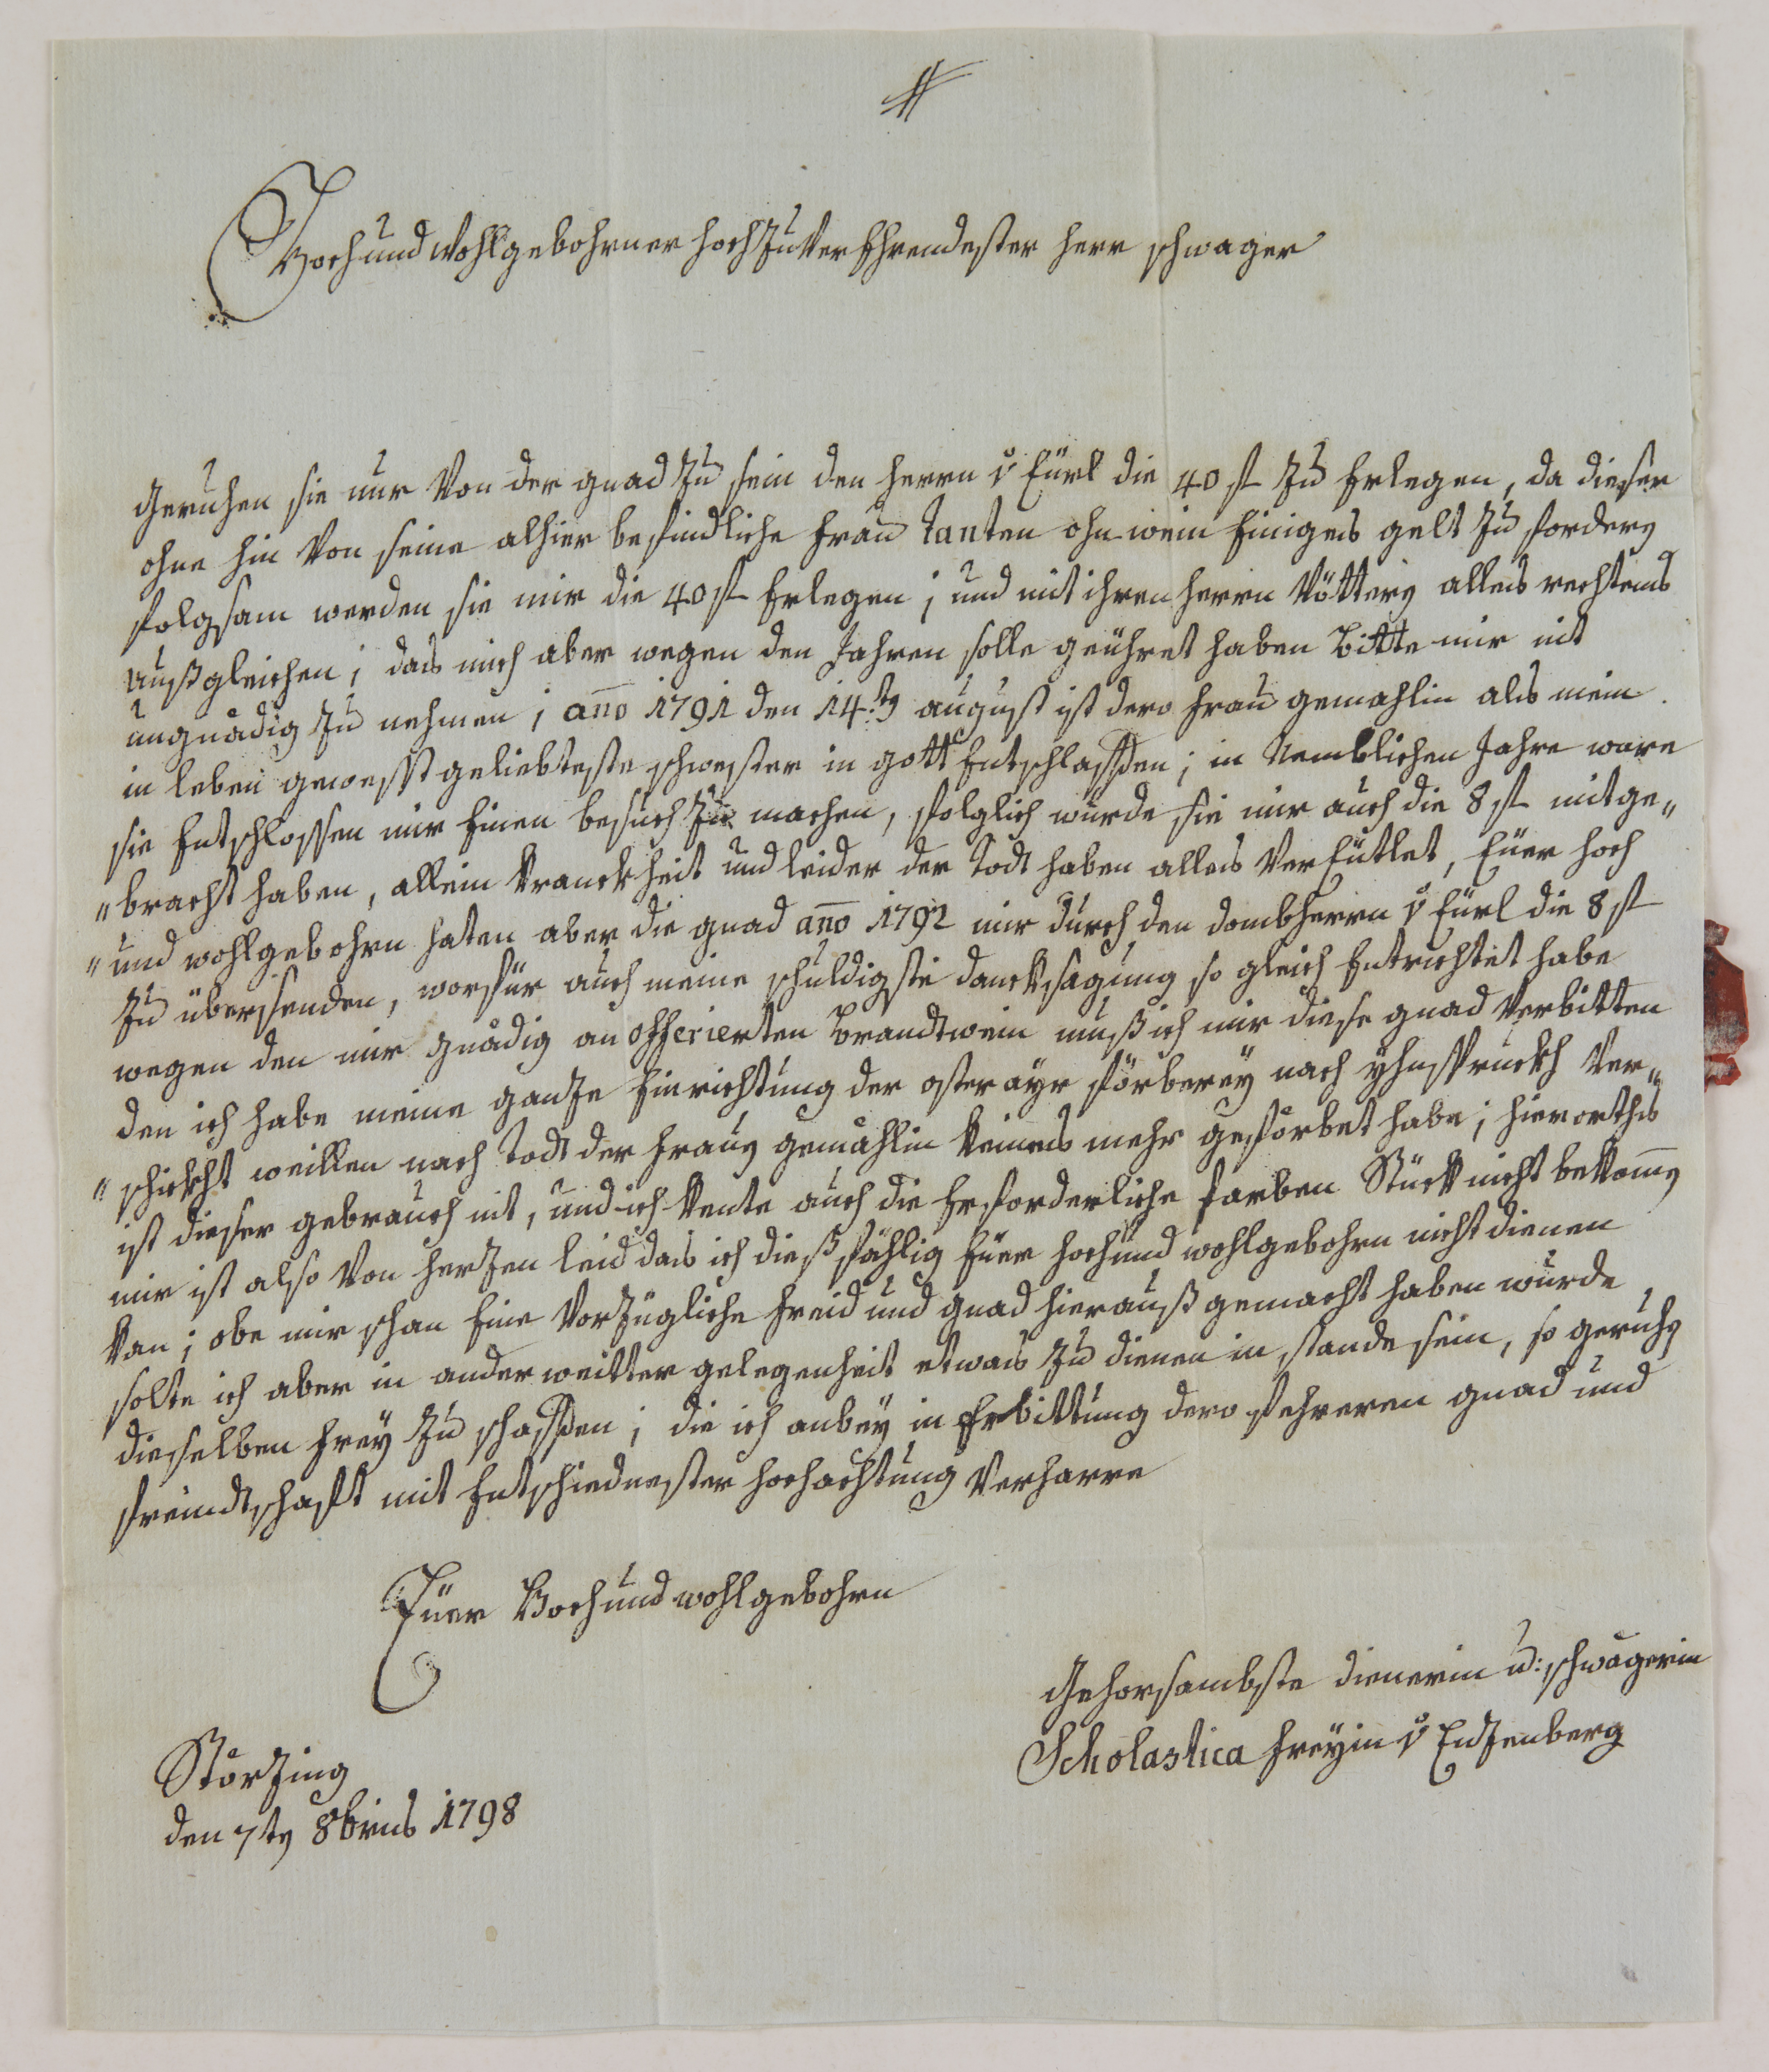 Hoch und Wohlgebohrner hoch zu Ver Ehrendester herr schwager
Geruhen sie nur Von der gnad zu sein den herrn v Eürl die 40 fl zu Erlegen, da dieser
ohne hin Von seine alhier befindliche frau Tanten ohn wein Einiges gelt zu fordern
folgsam werden sie mir die 40 fl Erlegen; und mit ihren herrn Vöttern alles rechtens
außgleichen; das mich aber wegen den Jahren solle geühret haben bitte mir nit
ungnädig zu nehmen; ano 1791 den 14:tn august ist dero frau gemahlin als mein
in leben gewesst geliebteste schwester in gott Entschlaffen; in Nemblichen Jahre ware
sie Entschlossen mir Einen besuch zu machen, folglich wurde sie mir auch die 8 fl mitge„
„bracht haben, allein kranckheit und leider der Todt haben alles Ver Eütlet, Eüer hoch
„und wohlgebohrn haten aber die gnad ano 1792 mir durch den dombherrn v Eürl die 8 fl
zu übersenden, worfür auch meine schuldigste dancksagung so gleich Entrichtet habe
wegen den mir gnädig an offerierten brandtwein muß ich mir diese gnad Verbitten
den ich habe meine ganze Einrichtung der osterayr förberey nach yhnspruckh Ver„
„schickht weillen nach Todt der fraun gemahlin keines mehr geförbet habe; hierorths
ist dieser gebrauch nit, und ich kente auch die Erforderliche farben Stuck nicht bekomen
mir ist also Von herzen leid das ich dießfählig Eüer hoch und wohlgebohrn nicht dienen
kan; obe mir schon Eine Vorzügliche freid und gnad hierauß gemacht haben wurde,
solte ich aber in anderweitter gelegenheit etwas zu dienen in stande sein, so geruhn
dieselben frey zu schaffen; die ich anbey in Erbittung dero fehreren gnad und
freindtschafft mit Entschiednester hochachtung Verharre
Eüer Hoch und wohlgebohrn
Gehorsambste dienerin u: schwägerin
Scholastica freyin v Enzenberg
Störzing
den 7tn 8bris 1798